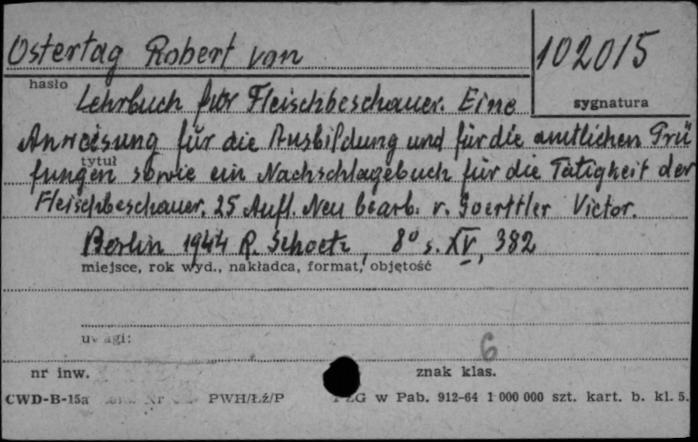 Ostertag Robert von
102015
hasło
sygnatura
Lehrbuch für Fleischbeschauer. Eine
Anweisung für die Ausbildung und für die amtlichen Prü
tytuł
fungen sowie ein Nachschlagebuch für die Tätigkeit der
Fleischbeschauer. 25 Aufl. Neu bearb. v. Goerttler Victor.
Berlin 1944 R. Schoetz, 8° s. XV, 382
miejsce, rok wyd., nakładca, format, objętość
uwagi:
6
nr inw.
znak klas.
CWD-B-15a PWH/Łź/P PZG w Pab. 912-64 1 000 000 szt. kart. b. kl. 5.